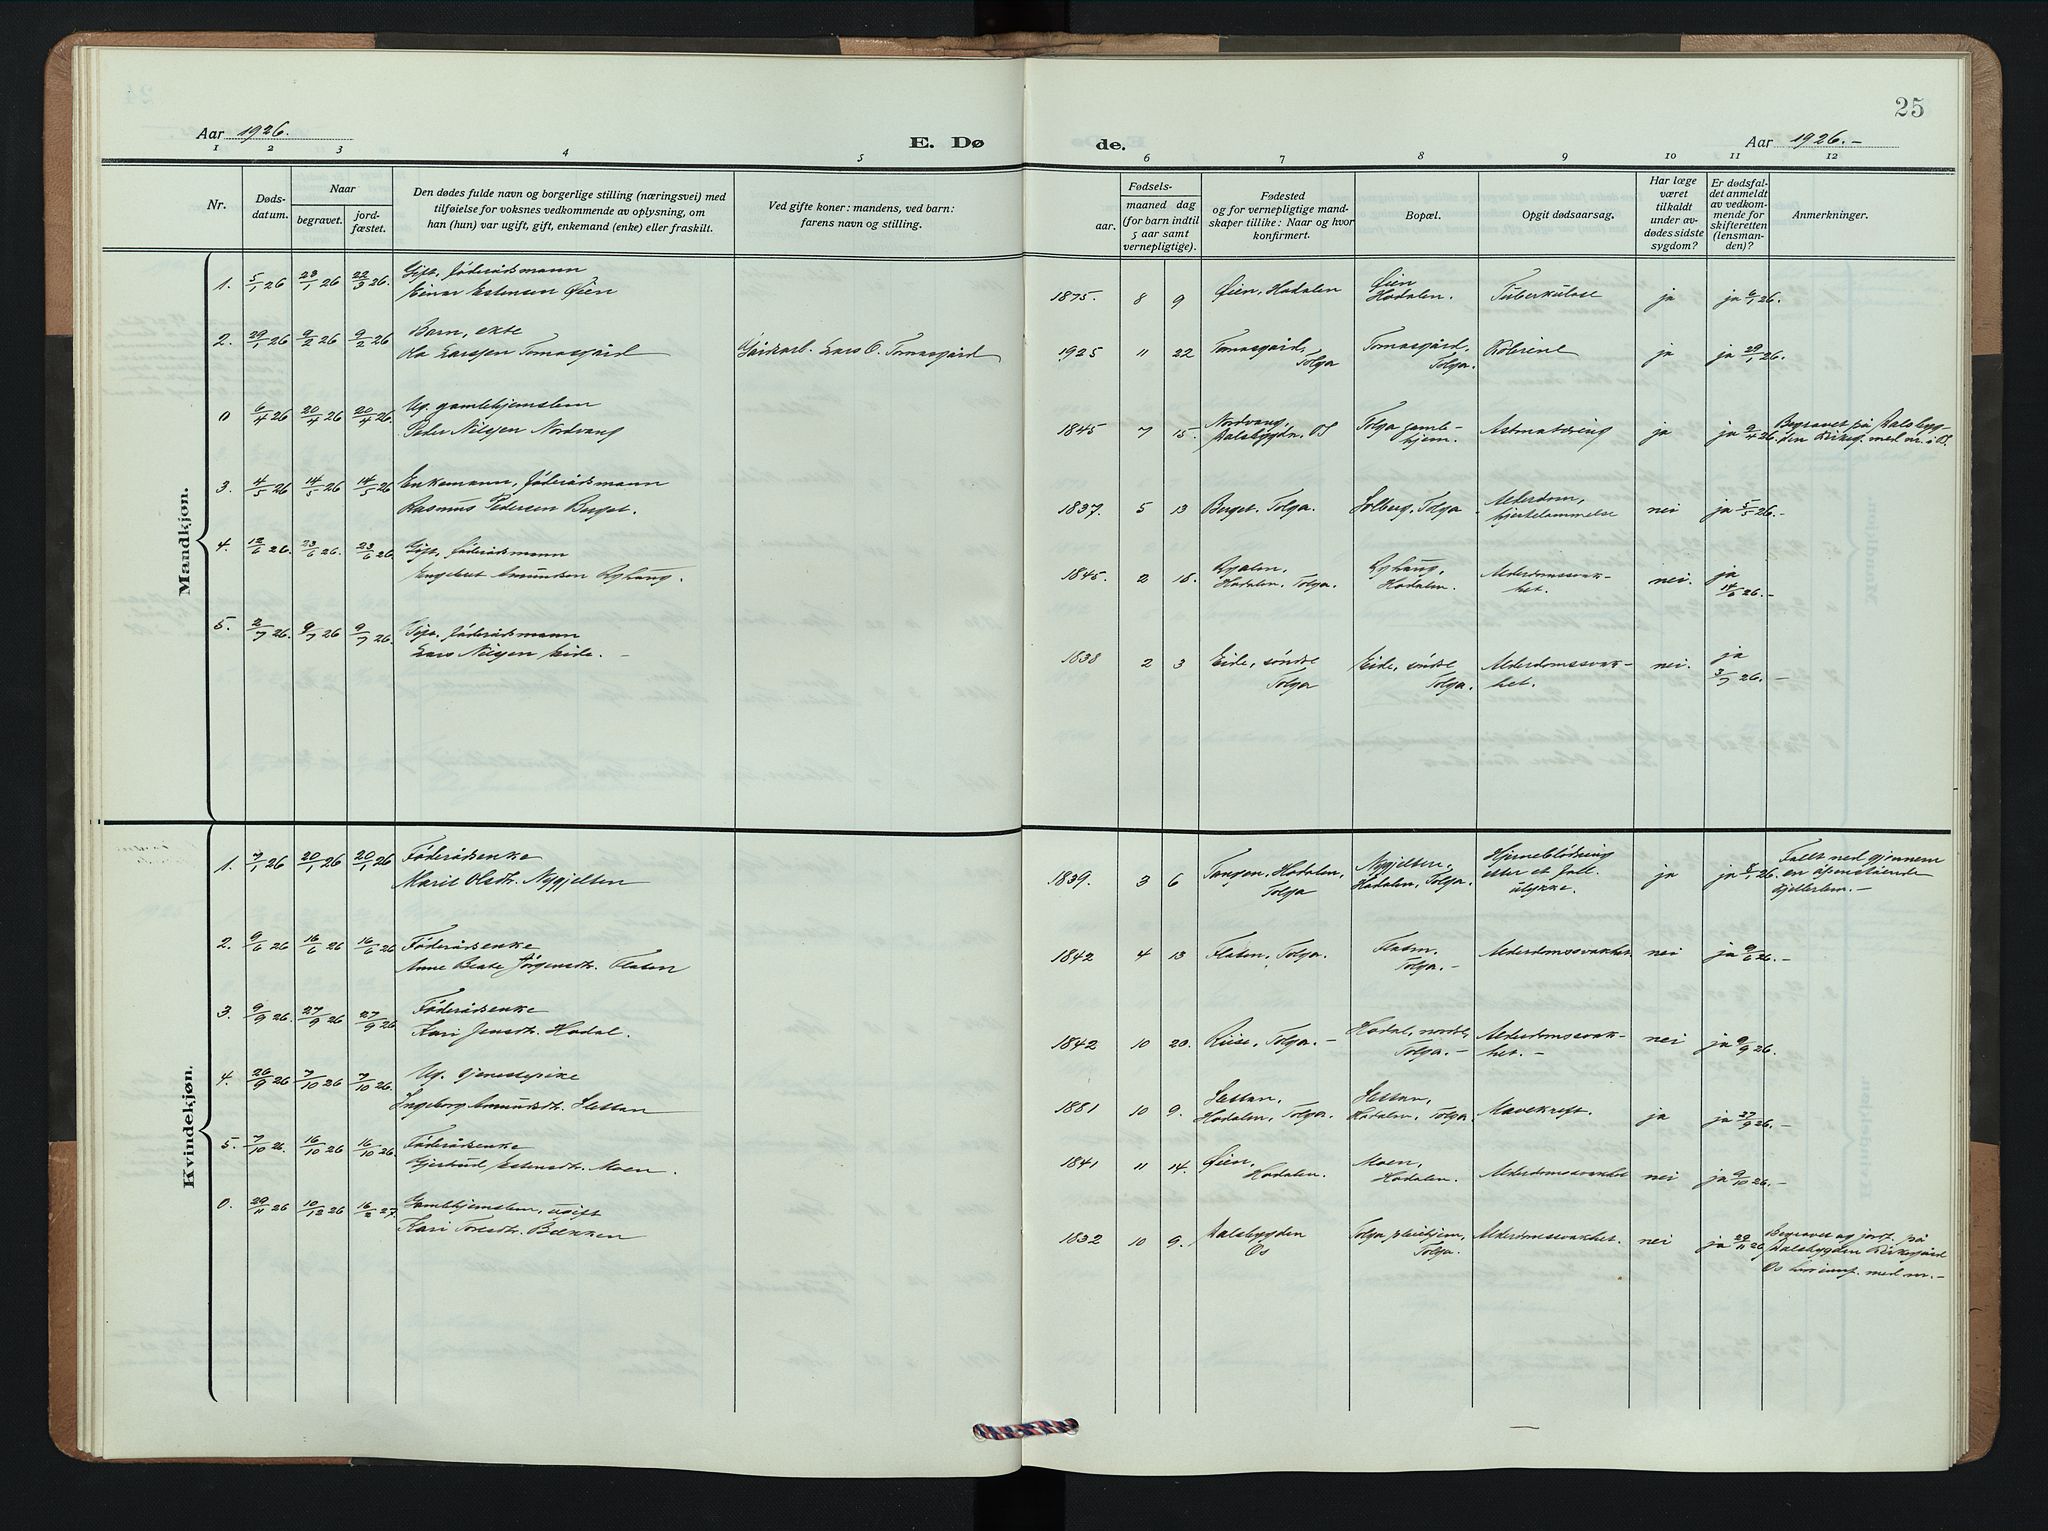 25
Aar 1926.
E. Dø
de.
Aar 1926.-
1 2 3 4 5 6 7 8 9 10 11 12
Nr.
Døds-
datum.
Naar
begravet.
jord-
fæstet.
Den dødes fulde navn og borgerlige stilling (næringsvei) med
tilføielse for voksnes vedkommende av oplysning, om
han (hun) var ugift, gift, enkemand (enke) eller fraskilt.
Ved gifte koner: mandens, ved barn:
farens navn og stilling.
Fødsels-
aar.
maaned dag
(for barn indtil
5 aar samt
vernepligtige).
Fødested
og for vernepligtige mand-
skaper tillike: Naar og hvor
konfirmert.
Bopæl.
Opgit dødsaarsag.
Har læge
været
tilkaldt
under av-
dødes sidste
sygdom?
Er dødsfal-
det anmeldt
av vedkom-
mende for
skifteretten
(lensman-
den)?
Anmerkninger.
Mandkjøn.
1. 5/1 26 23/1 26 22/3 26. Gift, føderådsmann
Einar Estensen Øien
1875. 8 9 Øien, Hodalen
Øien
Hodalen.
Tuberkulose ja ja 6/1 26.
2. 29/1 26 9/2 26 9/2 26 Barn, ekte
Ola Larssen Tomasgård
Gårdsarb. Lars O. Tomasgård
1925 11 22 Tomasgård,
Tolga
Tomasgård,
Tolga.
ja ja 29/1 26.
0 6/4 26 20/4 26 20/4 26 Ug. gamlehjemslem
Peder Nilssen Nordvang
1845 7 15. Nordvang,
Dalsbygdn, OS
Tolga gamle-
hjem.
ja ja 9/4 26.
Begravet på Dalsbyg-
den Kirkeg. med nr. i OS.
3. 4/5 26 14/5 26 14/5 26 Enkemann, føderådsmann
Rasmus Pedersen Berget.
1837. 5 13 Berget, Tolga. Solberg, Tolga
Alderdom,
hjertelammelse
nei ja 5/5 26.-
4. 12/6 26. 23/6 26. 23/6 26 Gift, føderådsmann
Engebret Amundsen Ryhaug.
1845. 2 18.
Hodalen, Tolga.
Ryhaug,
Hodalen.
Alderdomssvak-
het.
nei. ja
14/6 26.-
5. 2/7 26. 9/7 26 9/7 26. Gift, føderådsmann
Lars Nilssen Eide. -
1838 2 3 Eide, søndre
Tolga
Eide, søndre
Tolga.
Alderdomssvak-
het.
nei. ja
3/7 26. -
Kvindekjøn.
1. 7/1 26 20/1 26 20/1 26 Føderådsenke
Marit Olsdtr. Nygjelten
1839. 3 6 Tangen, Hodalen,
Tolga
Nygjelten,
Hodalen, Tolga.
Hjerneblødning
etter et fall.
ulykke.
ja ja 8/1 26.
Falt ned gjennem
en åpenstående
kjellerlem. -
2. 9/6 26 16/6 26 16/6 26 Føderådsenke
Anne Beate Jørgensdtr. Flaten
1842 4 13 Flaten, Tolga.
Flaten,
Tolga. -
Alderdomssvakhet. nei ja 9/6 26.-
3. 9/9 26. 27/9 26 27/9 26. Føderådsenke
Kari Jensdtr. Hodal.
1842 10 20. Riise, Tolga. -
Hodal, nordre,
Tolga. -
Alderdomssvak-
het. -
nei ja 9/9 26.
4. 26/9 26 7/10 26 7/10 26. Ug. tjenestepike
Ingeborg Amundsdtr. Slettan
1881 10 9. Slettan,
Hodalen, Tolga.
Slettan,
Hodalen, Tolga
Mavekreft. ja ja 27/9 26.-
5. 7/10 26. 16/10 26 16/10 26. Føderådsenke
Gjertrud Estensdtr. Moen.
1841 11 14. Øien,
Hodalen.
Moen,
Hodalen.
Alderdomssvakhet nei ja 9/10 26.-
0. 29/11 26 10/12 26 16/2 27. Gamlehjemslem, ugift
Kari Toresdtr. Bækken
1832 10 9. Dalsbygden
Os
Tolga pleiehjem,
Tolga.
Alderdomssvakhet. nei ja 29/11 26
Begravet og jordf. på
Dalsbygden Kirkegård
Os med nr.-